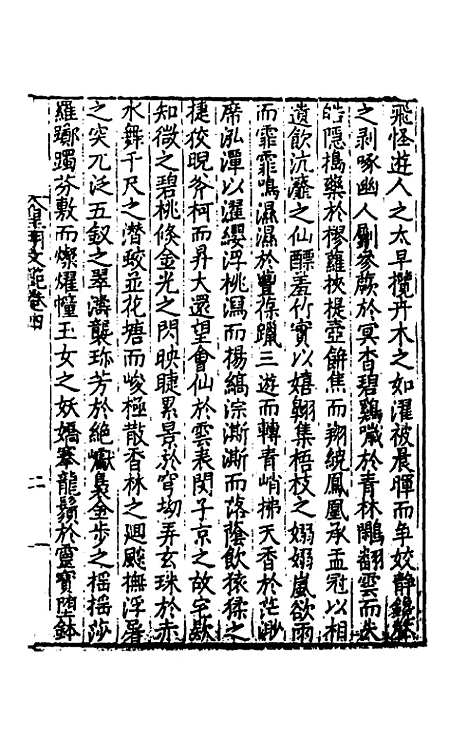 飛怪遊人之太早攬卉木之如濯被晨暉而阜姣靜
之剥啄幽人劚參蕨於冥杳碧鷄嘰於青林鵰翻雲而失
皓隱搗藥於樛蘿挾提壺觧焦而翔統鳳凰承盂冠以相
遺飲沆瀣之仙醥羞竹實以嬉翺集梧枝之嫋嫋嵐欲雨
而霏霏鳴濕濕於豐葆躐三遊而轉青峭拂天香於茫渺
席泓潭以濯纓浮桃瀉而楊縞淙澌澌而落蔭飲猿猱之
捷佼睨斧柯而昇大還望會仙於雲表閔子京之故宅歎
知微之碧桃倏金光之閃映睫累景於穹坳弄玄珠於赤
水舞千尺之潛蛟並花塘而峻極散香林之迴飇撫浮屠
之突兀泛五釵之翠濤襲珎芳於絶巘裊金步之揺揺莎
羅躑躅芬敷而燦燿幢玉女之妖嬌搴龍鬚於靈寶墮鉢
大皇明文範卷四
二